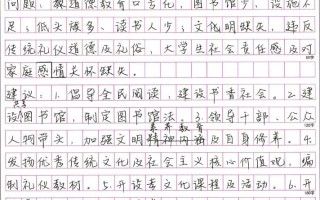 问题、叔道德教育口号化，图书馆少，设施不
足；低头族多、读书人少；文化明缺失，违反
传统礼仪道德及礼俗，大学生社会责任感及对
家庭感情关怀缺失。
建议：1.倡导全民阅读，建设书香社会。2.
设图书馆，制定图书馆法。3.领导干部、公众
素养教育
人物带头，加强文明精神内涵及自身修养。4.
发扬优秀传统文化及社会主义核心价值观，编
制礼仪教材。5.开设孝文化课程及活动。6.开